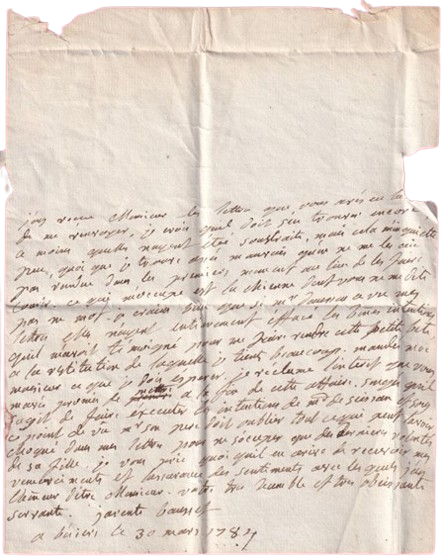 j'ay recue Monsieur les lettres que vous avés eu la
de me renvoyer, je crois quil doit sen trouver encore
a moins quelles nayent été soustraits, mais cela m'inquiette
peu, quoi que je trouve assés mauvais quon ne me les aie
pas rendue dans les premiers moment au lieu de les faire
courir. ce qui m'occupe est la chienne dont vous ne me dites
pas un mot. o crains bien que si mr a vu mes
lettres elles nayent entierement effacé les bonnes intentions
quil mavoit temoigné pour me faire rendre cette petite bete
a la restitution de laquelle je tiens beaucoup. mandés moi
monsieur ce que je dois esperer, je reclame l'interet que vous
mavés promis de mettre a la fin de cette affaire. songés quil
sagit de faire executer les intentions de mde et sous
ce point de vu mr son pere doit oublier tout ce qui peut l'avoir
choqué dans mes lettres pour ne socuper que des dernieres volontés
de sa fille. je vous prie quoi quil en arive de recevoir mes
remerciments et lassurance des sentiments avec les quels j'ai
l'honneur d'être Monsieur votre tres humble et tres obeissante
servante. jarente
a beziers le 30 mars 1784